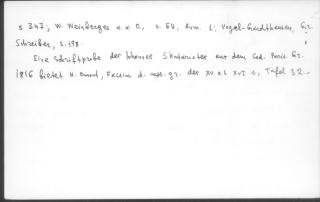 s. 347; W. Weinberger a. a. O., s. 64, Anm. 1; Vogel-Gardthausen, Gr.
Schreiber, s. 198.
Eine Schriftprobe der Ioannes Skutariotes aus dem Cod. Paris. Gr.
1816 bietet H. Omont, Facsim. d. mss. gr. des XV et XVI s., Tafel 32.